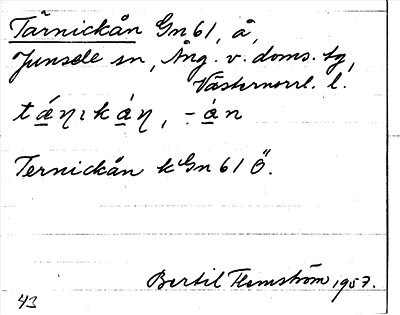 Tärnickån Gn 61, å,
Junsele sn, Ång. v. doms. tg,
Västernorrl. l.
tä́ɳıkåɳ, -ån
Ternickån kGn 61 Ö.
Bertil Flemström 1957.
43